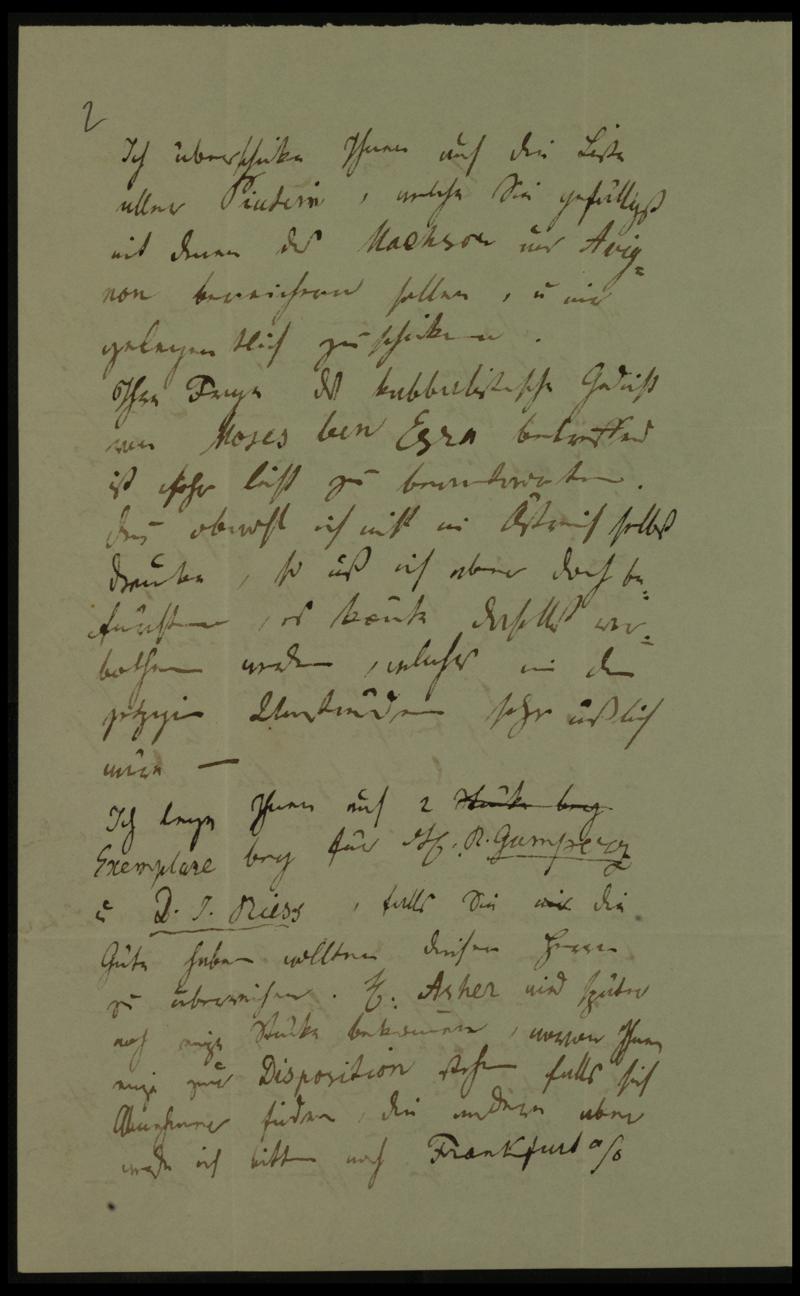 2
Ich überschicke Ihnen auch die Liste
aller Piutim, welche Sie gefälligst
mit denen des Machsor aus Avig=
non bereichern sollen, u mir
gelegentlich zu schicken.
Ihre Frage das kabbalistische Gedicht
von Moses ben Esra betreffend
ist sehr leicht zu beantworten.
obwohl ich nicht in Östreich selbst
drucke, so muß ich aber doch be=
fürchten, es könnte daselbst ver=
bothen werden, welches in den
jetzigen Umständen sehr mißlich
wäre —
Ich lege Ihnen auch 2 Stücke bey
Exemplare bey für H. R. Gumperz
u D. J. Riess, falls Sie mir die
Güte haben wollten diesen Herren
zu überreichen. H. Asher wird später
noch einige Stücke bekommen, wovon Ihnen
einige zur Disposition stehen falls sich
Abnehmer finden, die andern aber
werde ich bitten nach Frankfurt a/o